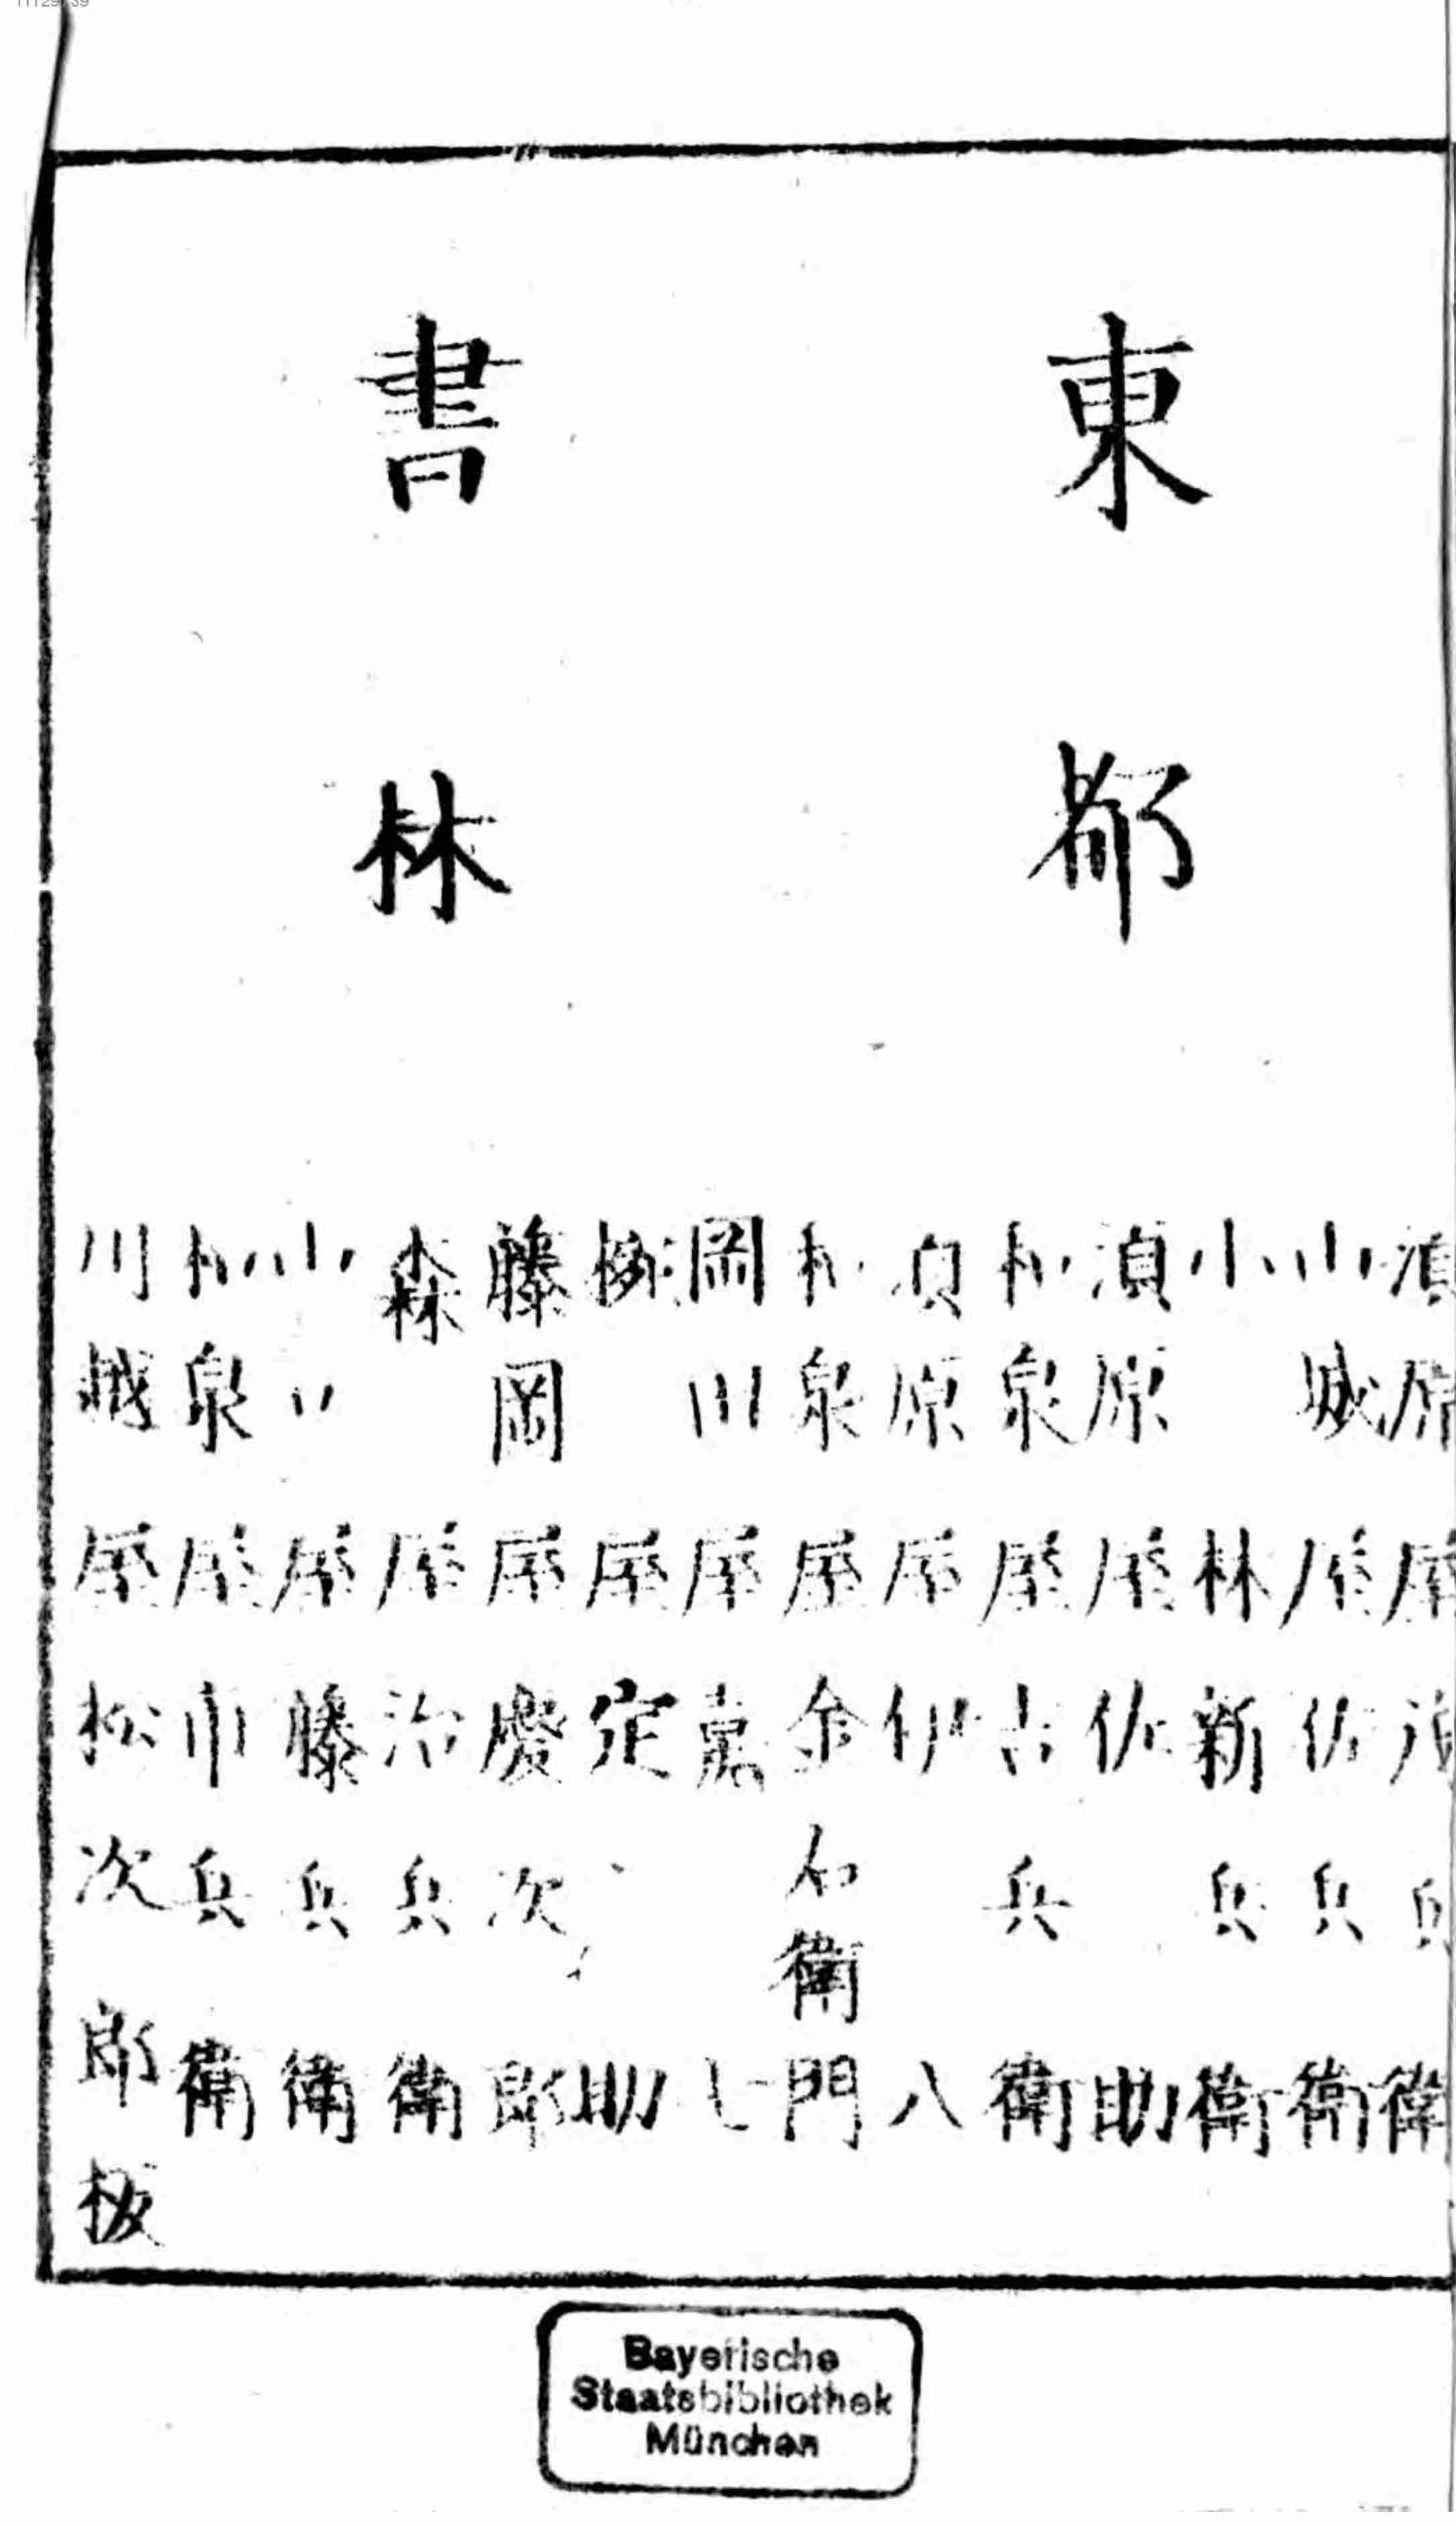 東都
書林
湏原屋茂兵衛
山城屋佐兵衛
小林新兵衛
湏原屋佐助
和泉屋吉兵衛
湏原屋伊八
和泉屋金右衛門
岡田屋嘉七
屋定助
藤岡屋慶次郎
森屋治兵衛
山口屋藤兵衛
和泉屋市兵衛
川越屋松次郎板
Bayerische
Staatsbibliothek
München